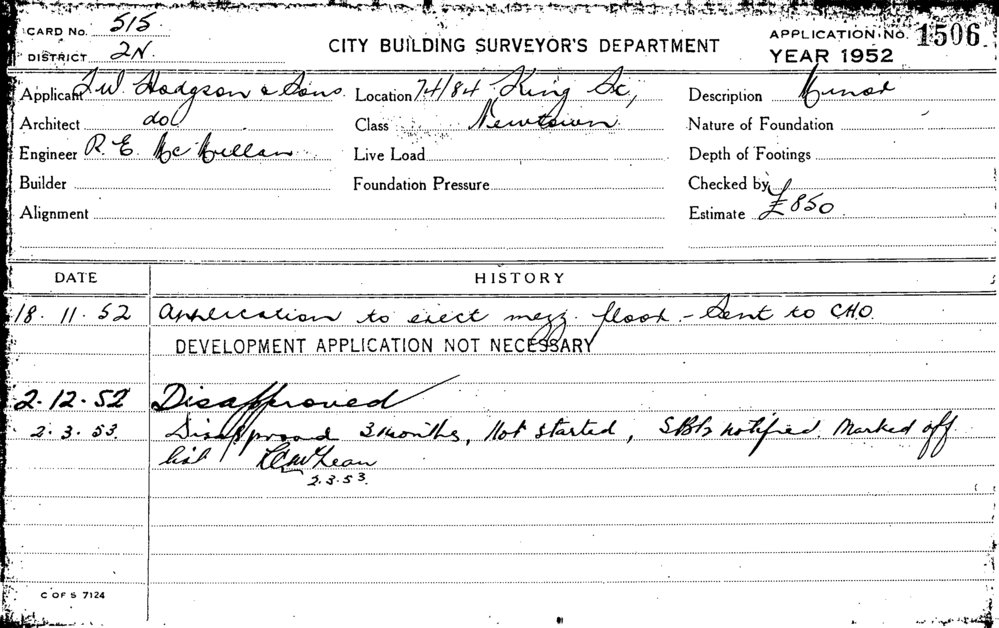 CARD No. 515
DISTRICT 2N.
CITY BUILDING SURVEYOR'S DEPARTMENT
APPLICATION No. 1506
YEAR 1952
Applicant J.W. Hodgson & Sons. Location 74/84 King St, Description Minor
Architect do Class Newtown Nature of Foundation
Engineer R. E. McMillan Live Load Depth of Footings
Builder Foundation Pressure Checked by
Alignment Estimate £850
DATE HISTORY
18. 11. 52 Application to erect mezz. floor. - Sent to CHO.
DEVELOPMENT APPLICATION NOT NECESSARY
2. 12. 52 Disapproved
2. 3. 53. Disapproved 3 months, Not started, notified. Marked off
list
2.3.53.
C OF S 7124